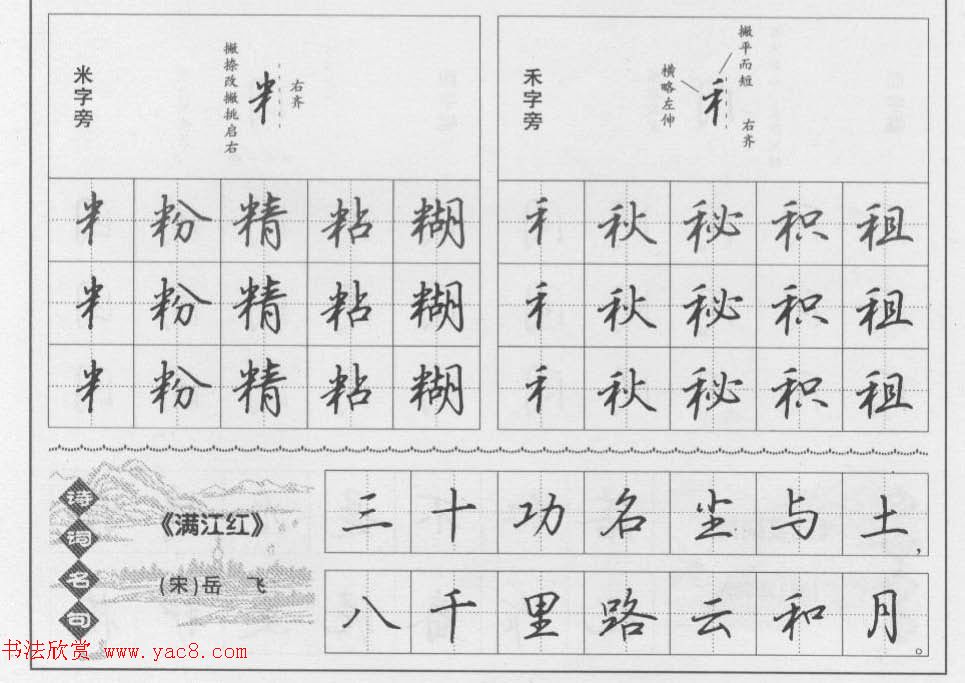 米字旁
撇捺改撇挑启右
右齐
禾字旁
横略左伸
撇平而短
右齐
米 粉 精 粘 糊
米 粉 精 粘 糊
米 粉 精 粘 糊
禾 秋 秘 积 租
禾 秋 秘 积 租
禾 秋 秘 积 租
诗词名句
《满江红》
(宋)岳 飞
三十功名尘与土,
八千里路云和月。
书法欣赏 www.yac8.com